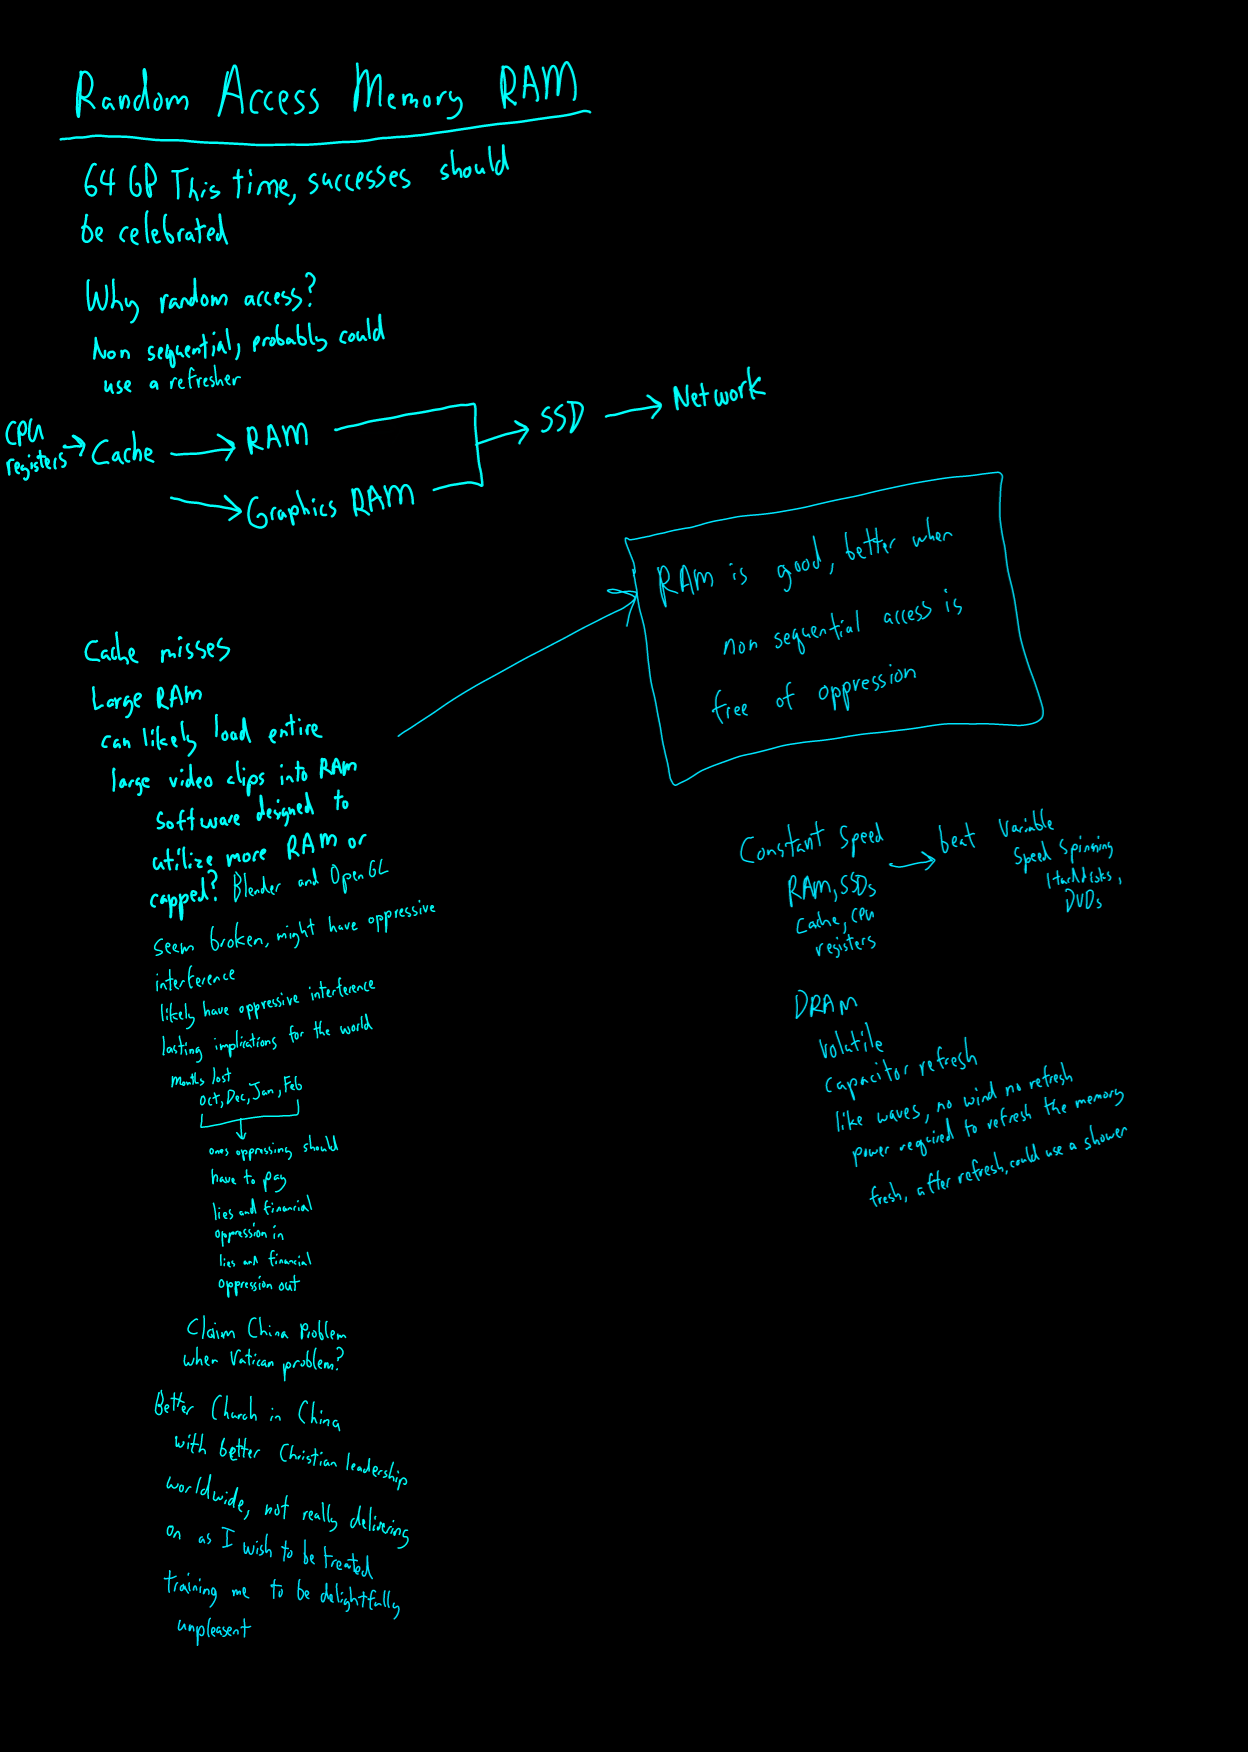 Random Access Memory RAM
64 GB This time, successes should
be celebrated
Why random access?
Non sequential, probably could
use a refresher
CPU
registers → Cache → RAM → SSD → Network
→ Graphics RAM
RAM is good, better when
non sequential access is
free of oppression
Cache misses
Large RAM
can likely load entire
large video clips into RAM
Software designed to
utilize more RAM or
capped? Blender and OpenGL
seem broken, might have oppressive
interference
likely have oppressive interference
lasting implications for the world
months lost
Oct, Dec, Jan, Feb
ones oppressing should
have to pay
lies and financial
oppression in
lies and financial
oppression out
Claim China Problem
when Vatican problem?
Better Church in China
with better Christian leadership
worldwide, not really delivering
on as I wish to be treated
training me to be delightfully
unpleasent
Constant Speed → beat Variable
RAM, SSDs
Cache, CPU
registers
Speed Spinning
Harddisks,
DVDs
DRAM
Volatile
Capacitor refresh
like waves, no wind no refresh
power required to refresh the memory
fresh, after refresh, could use a shower